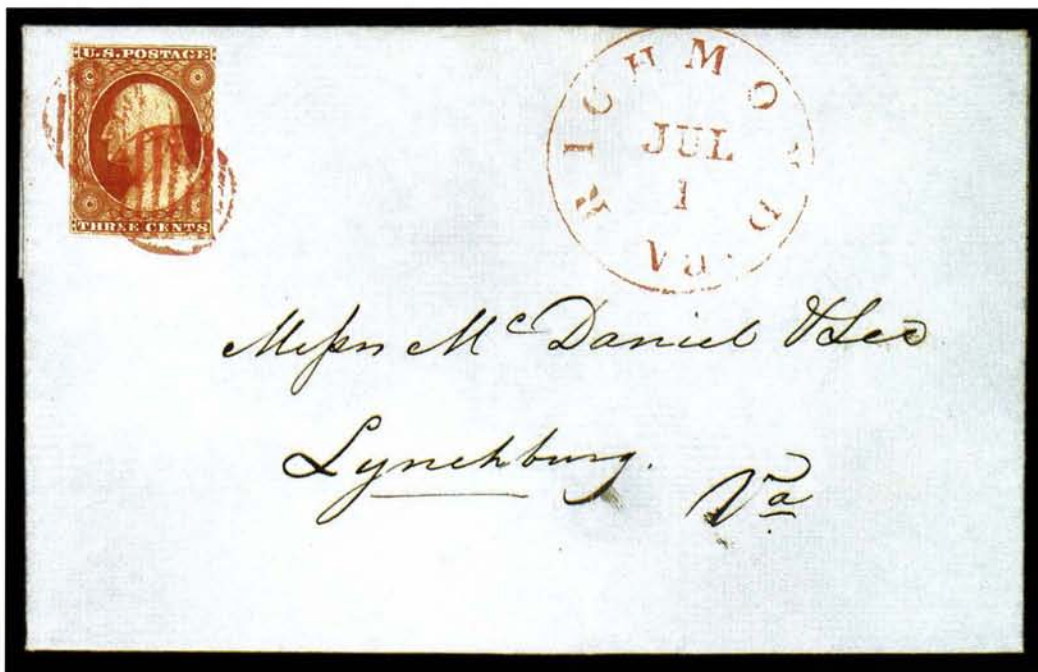 U.S. POSTAGE
THREE CENTS
RICHMOND
JUL
1
Va.
Messrs Mc Daniel & Lee
Lynchburg.
Va